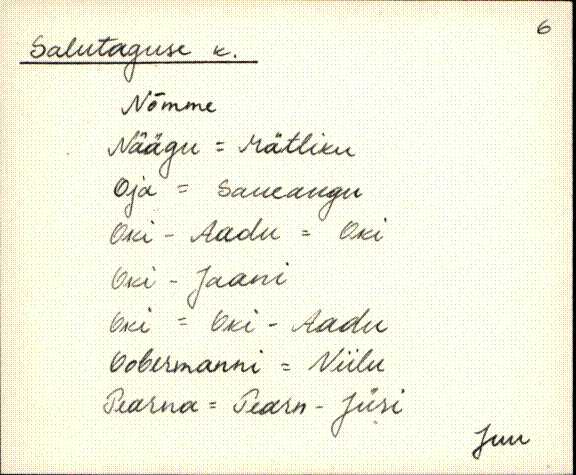 6
Salutaguse k.
Nõmme
Näägu = Mätliku
Oja = Saueaugu
Oki - Aadu = Oki
Oki - Jaani
Oki = Oki - Aadu
Oobermanni = Niilu
Pearna = Pearn - Jüri
Juu